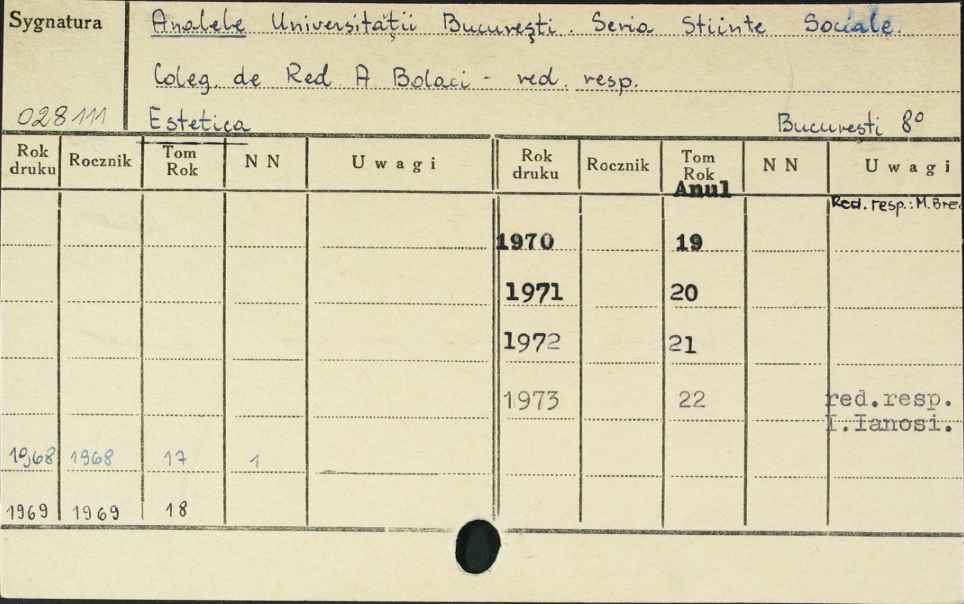 Sygnatura
Analele Universităţii Bucureşti. Seria Stiinte Sociale.
Coleg. de Red A Bolaci - red. resp.
028111
Estetica
Bucureşti 8°
Rok druku Rocznik Tom Rok NN Uwagi Rok druku Rocznik Tom Rok NN Uwagi
Anul
Red. resp.: M. Bre
1970 19
1971 20
1972 21
1973 22 red.resp.
I.Ianosi.
1968 1968 17 1
1969 1969 18